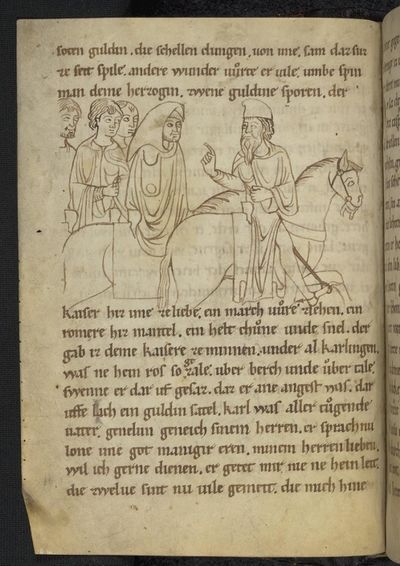 soten guldin. die schellen clungen. uon ime. sam daz sur
ze seit spile. andere wunder uůrte er uile. umbe spin
man deme herzogin. zwene guldine sporen. der
kaiser hiz ime ze liebe. ein march uůre ziehen. ein
romere hiz mantel. ein helt chůne unde snel. der
gab iz deme kaisere ze minnen. under al karlingen.
was ne hein ros so gezale. uber berch unde ůber tale.
swenne er dar uf gesaz. daz er ane angest was. dar
uffe lach ein guldin satel. karl was aller tůgende
uater. genelun geneich sinem herren. er sprach nu
lone ime got manigir eren. minem herren lieben.
wil ich gerne dienen. er getet mir nie ne hein leit.
die zwelue sint nu uile gemeit. die mich hine